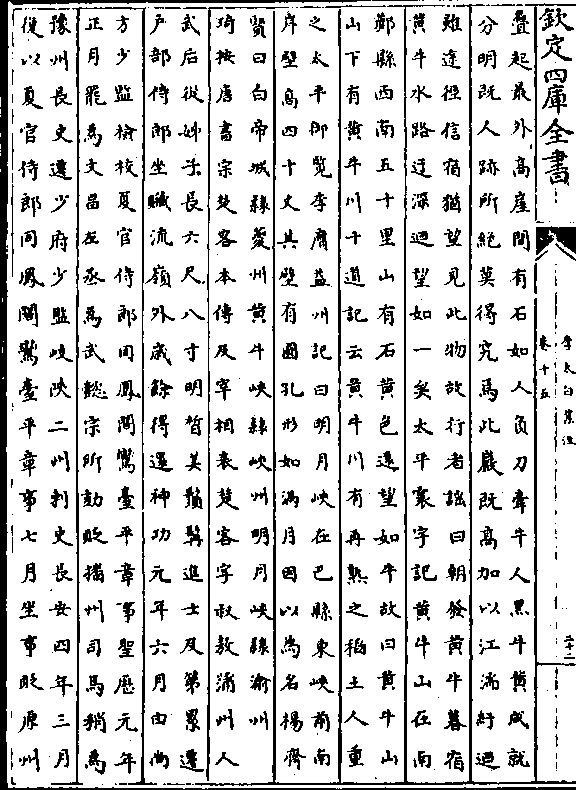 欽定四庫全書
李太白集注
卷十五
二十二
疊起最外高崖間有石如人負刀牽牛人黑牛黃成就
分明既人跡所絕莫得究焉此巖既高加以江湍紆迴
雖途徑信宿猶望見此物故行者謡曰朝發黃牛暮宿
黃牛水路迂深迴望如一矣太平寰宇記黃牛山在南
鄭縣西南五十里山有石黃色遠望如牛故曰黃牛山
山下有黃牛川十道記云黃牛川有再熟之稻土人重
之太平御覽李膺益州記曰明月峽在巴縣東峽前南
岸壁高四十丈其壁有圓孔形如滿月因以為名楊齊
賢曰白帝城隸夔州黃牛峽隸峽州明月峽隸渝州
琦按唐書宗楚客本傳及宰相表楚客字叔敖蒲州人
武后從姊子長六尺八寸明皙美鬚髯進士及第累遷
戶部侍郎坐贓流嶺外歲餘得還神功元年六月由尚
方少監檢校夏官侍郎同鳳閣鸞臺平章事聖歷元年
正月罷為文昌左丞為武懿宗所劾貶播州司馬稍為
豫州長史遷少府少監岐陜二州刺史長安四年三月
復以夏官侍郎同鳳閣鸞臺平章事七月坐事貶原州